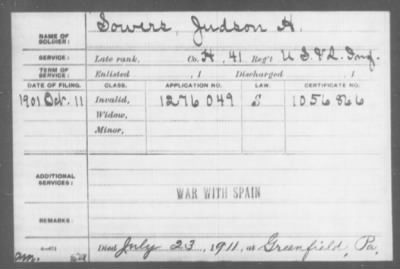 NAME OF SOLDIER: Sowers, Judson H.
SERVICE: Late rank, Co. H, 41 Reg't U S Vol. Inf.
TERM OF SERVICE: Enlisted , 1 Discharged , 1
DATE OF FILING. CLASS. APPLICATION NO. LAW. CERTIFICATE NO.
1901 Oct. 11 Invalid, 1276049 S 1056866
Widow,
Minor,
ADDITIONAL SERVICES:
WAR WITH SPAIN
REMARKS:
Died July 23, 1911, at Greenfield, Pa.